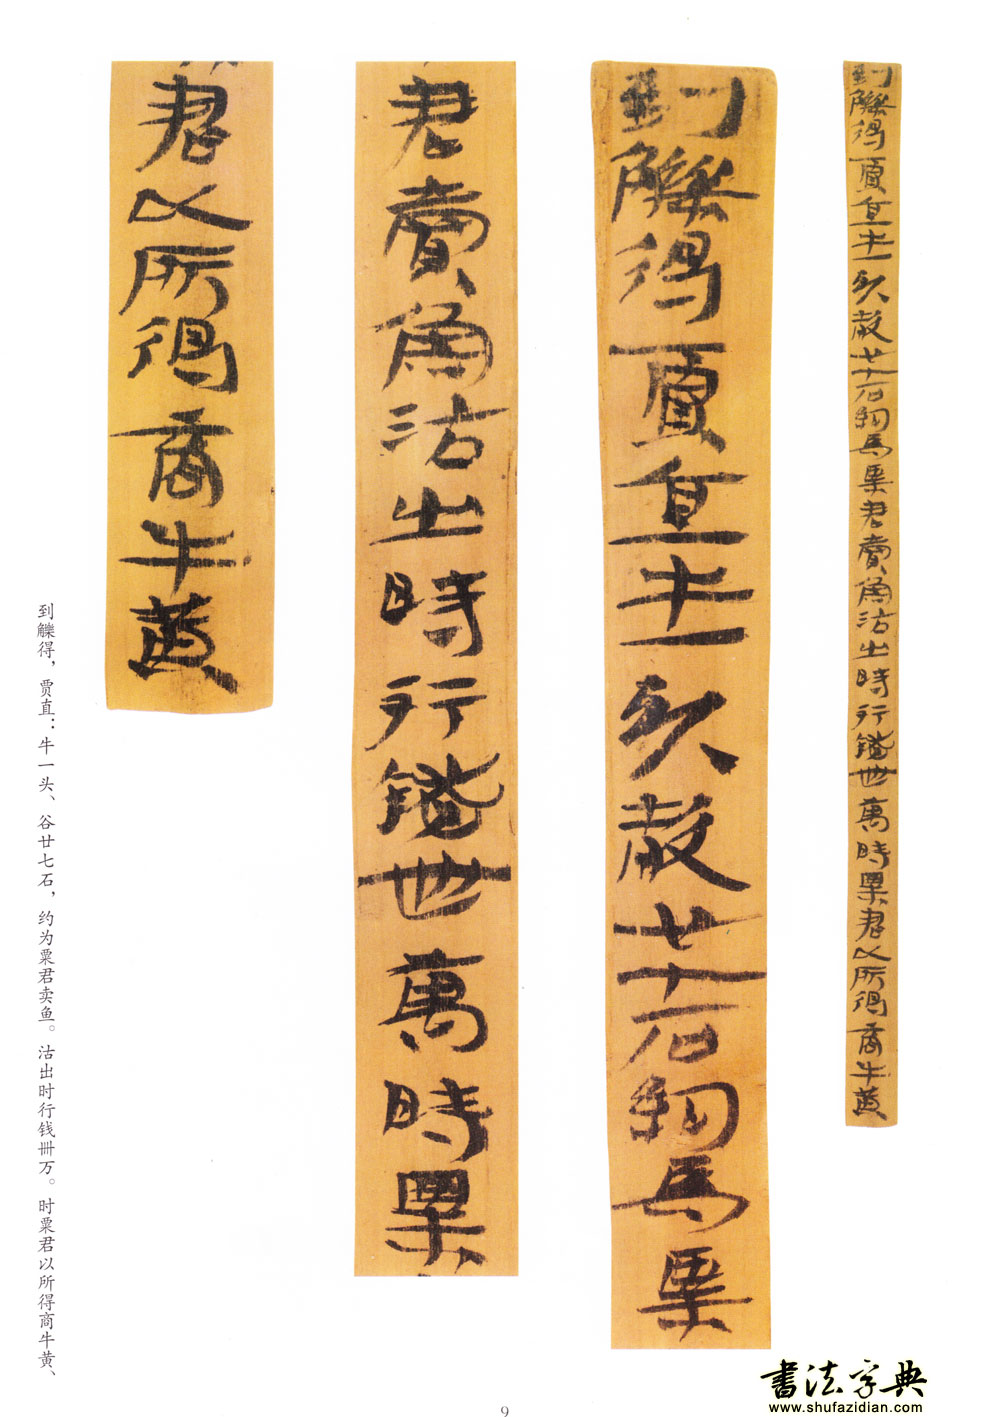 到觻得賈直牛一頭穀廿七石約為粟君賣魚沽出時行錢卌萬時粟君以所得商牛黃
到觻得賈直牛一頭穀廿七石約為粟
君賣魚沽出時行錢卌萬時粟
君以所得商牛黃
到觻得，贾直：牛一头、谷廿七石，约为粟君卖鱼。沽出时行钱卌万。时粟君以所得商牛黄、
9
書法字典
www.shufazidian.com